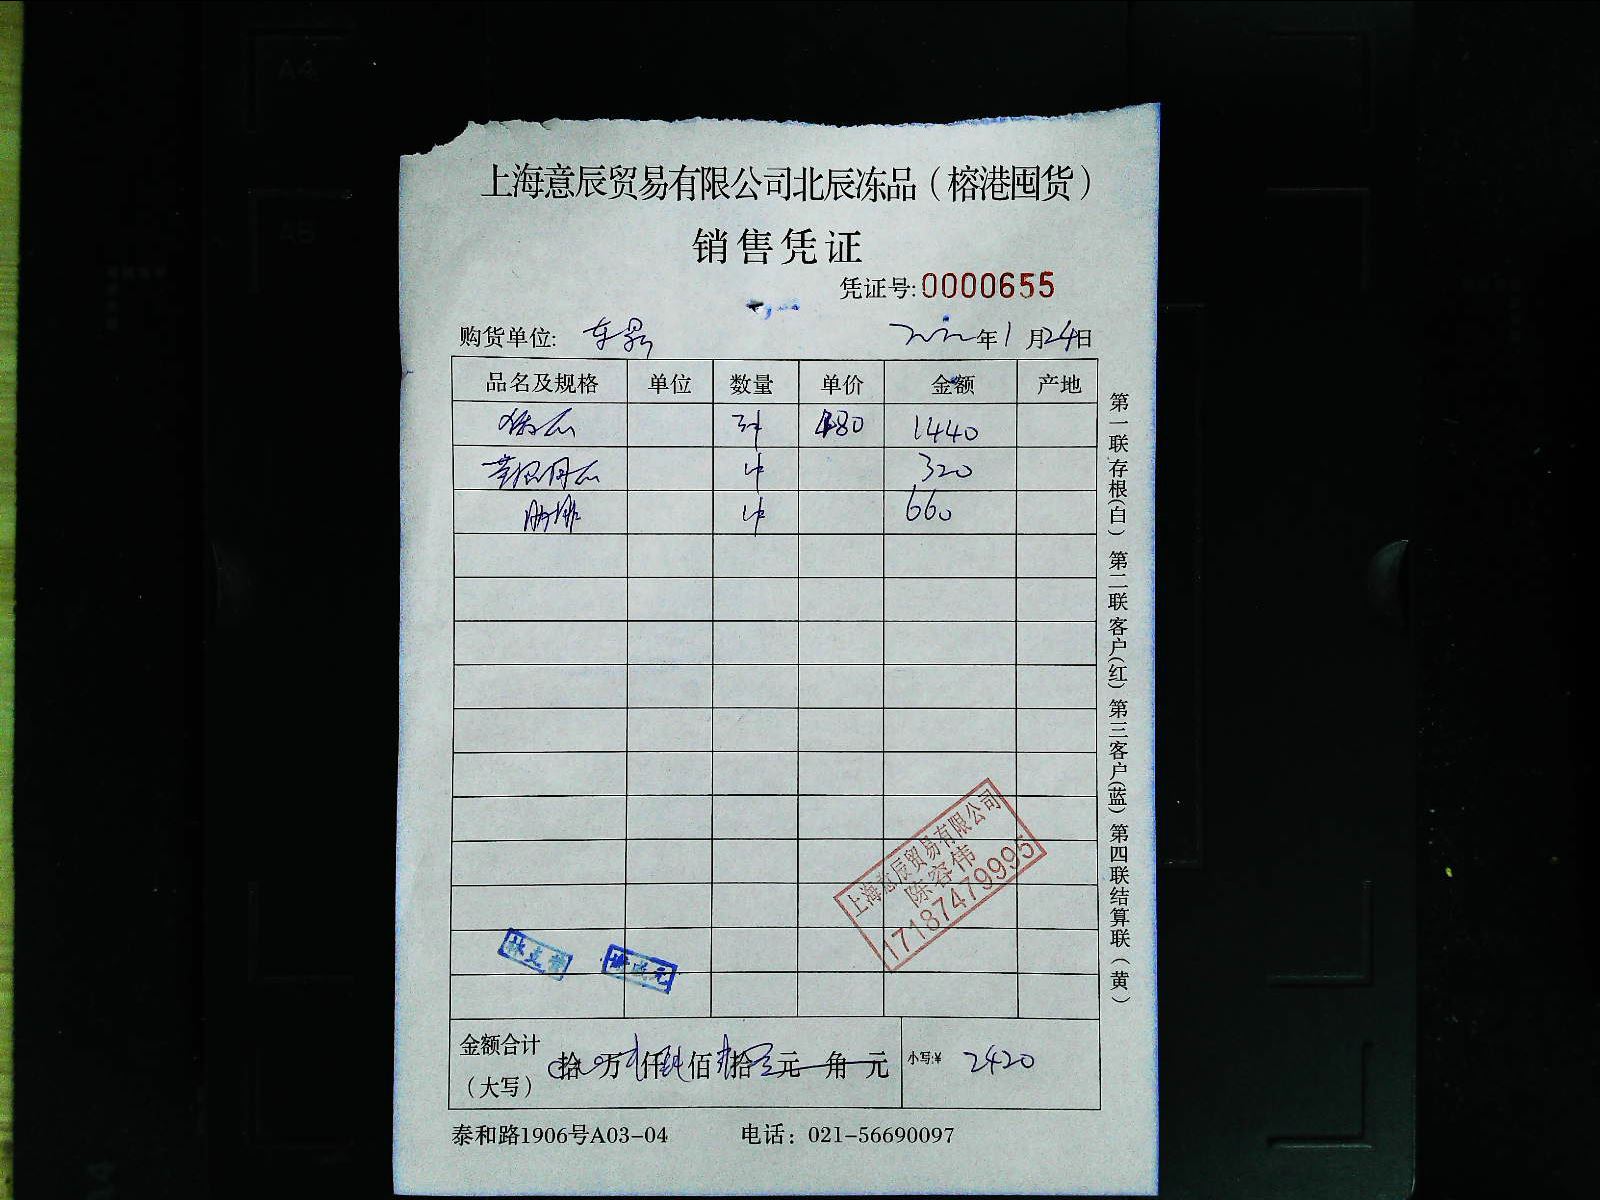 上海意辰贸易有限公司北辰冻品（榕港囤货）
销售凭证
凭证号:0000655
购货单位: 年1月24日
品名及规格 单位 数量 单价 金额 产地
3件 480 1440
1件 320
1件 660
第一联存根(白) 第二联客户(红) 第三客户(蓝) 第四联结算联(黄)
上海意辰贸易有限公司
陈容伟
17187479995
金额合计
（大写） 拾 万 仟 佰 拾 元 角 元 小写:¥ 2420
泰和路1906号A03-04 电话：021-56690097